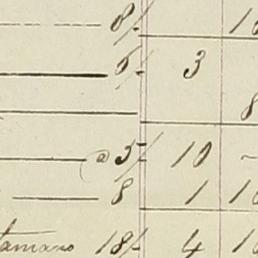 8/- 10
5/- 3
8
@ 5/- 10 -
8 1 10
tamano 18/- 4 10